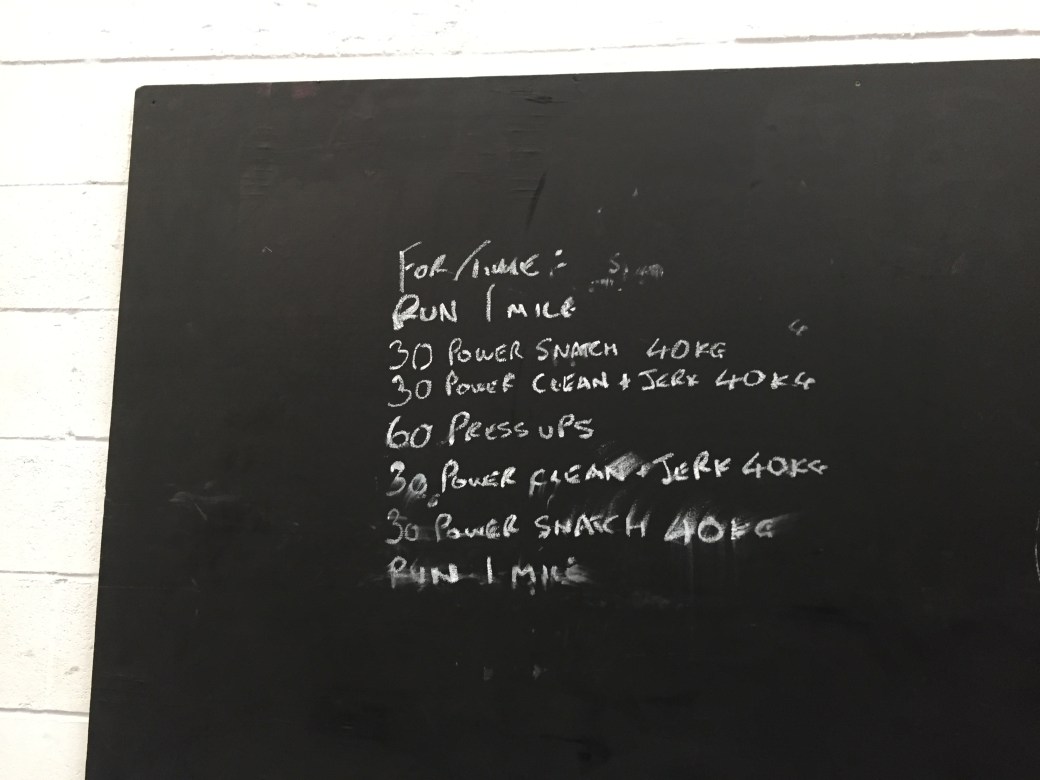 FOR/TIME:
RUN 1 MILE
30 POWER SNATCH 40KG
30 POWER CLEAN + JERK 40KG
60 PRESS UPS
30 POWER CLEAN + JERK 40KG
30 POWER SNATCH 40KG
RUN 1 MILE